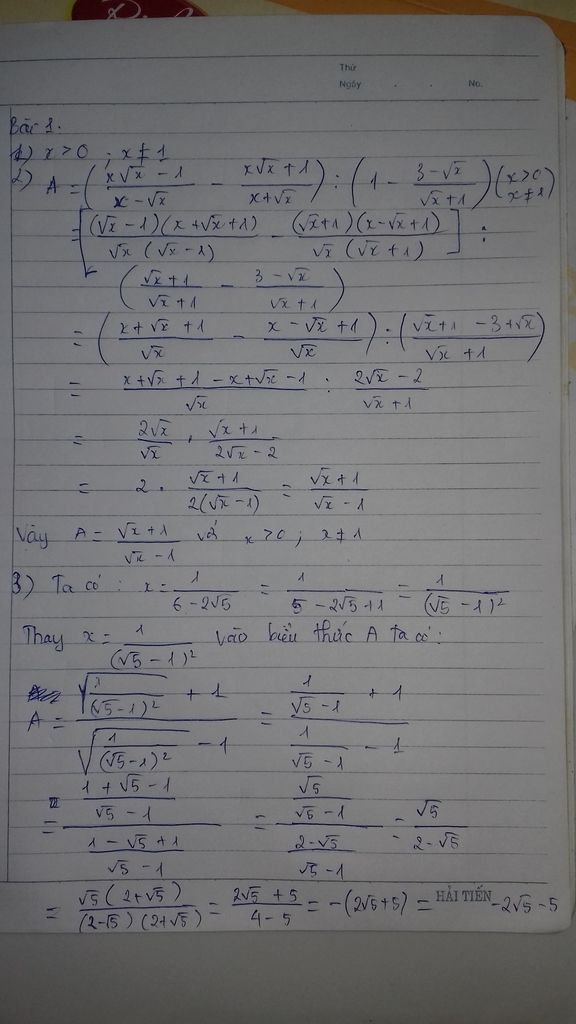 Thứ
Ngày . . No.
Bài 1.
1) x > 0 ; x ≠ 1
2) A = ( (x√x - 1)/(x - √x) - (x√x + 1)/(x + √x) ) : ( 1 - (3 - √x)/(√x + 1) ) (x > 0 x ≠ 1)
= [ (√x - 1)(x + √x + 1)/(√x (√x - 1)) - (√x + 1)(x - √x + 1)/(√x (√x + 1)) ] :
( (√x + 1)/(√x + 1) - (3 - √x)/(√x + 1) )
= ( (x + √x + 1)/√x - (x - √x + 1)/√x ) : ( (√x + 1 - 3 + √x)/(√x + 1) )
= (x + √x + 1 - x + √x - 1)/√x : (2√x - 2)/(√x + 1)
= 2√x/√x . (√x + 1)/(2√x - 2)
= 2 . (√x + 1)/(2(√x - 1)) = (√x + 1)/(√x - 1)
Vậy A = (√x + 1)/(√x - 1) với x > 0 ; x ≠ 1
3) Ta có : x = 1/(6 - 2√5) = 1/(5 - 2√5 + 1) = 1/(√5 - 1)²
Thay x = 1/(√5 - 1)² vào biểu thức A ta có :
A = (√(1/(√5 - 1)²) + 1)/(√(1/(√5 - 1)²) - 1) = (1/(√5 - 1) + 1)/(1/(√5 - 1) - 1)
= ((1 + √5 - 1)/(√5 - 1))/((1 - √5 + 1)/(√5 - 1)) = (√5/(√5 - 1))/((2 - √5)/(√5 - 1)) = √5/(2 - √5)
= √5(2 + √5)/((2 - √5)(2 + √5)) = (2√5 + 5)/(4 - 5) = -(2√5 + 5) = -2√5 - 5
HẢI TIẾN